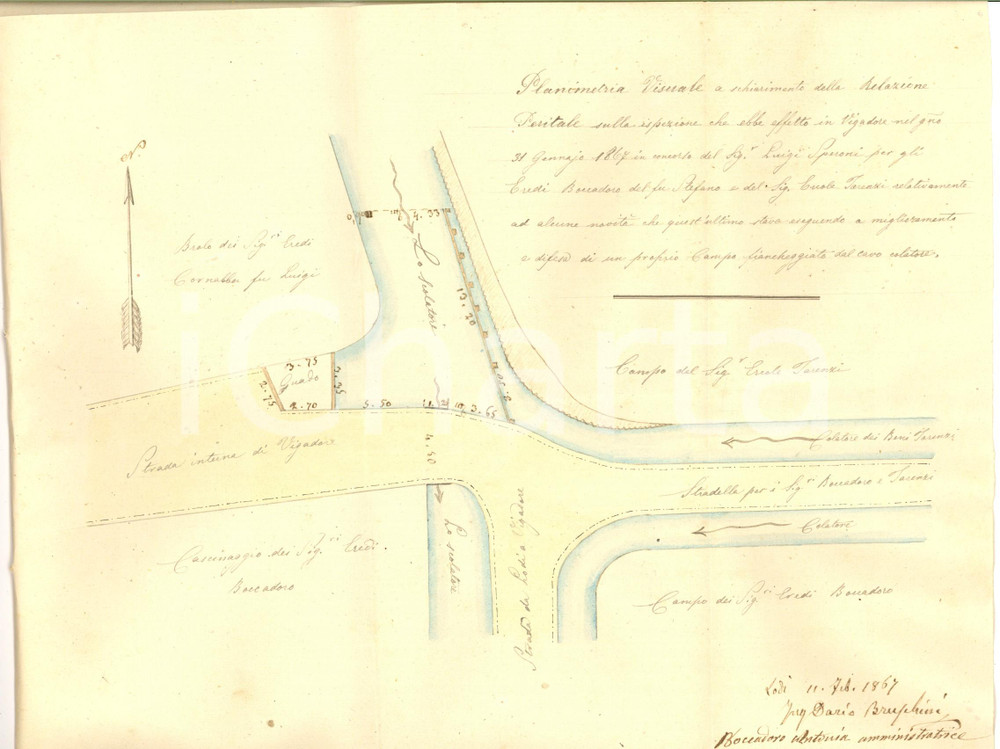 Planimetria Visuale a schiarimento della Relazione
Peritale sulla ispezione che ebbe effetto in Vigadore nel gno
31 Gennajo 1867 in concorso del Sigr. Luigi Speroni per gli
Eredi Boccadoro del fu Stefano e del Sig. Ercole Tarenzi relativamente
ad alcune novità che quest'ultimo stava eseguendo a miglioramento
e difesa di un proprio Campo fiancheggiato dal cavo colatore.
N.
Brolo dei Sigri Eredi
Cornabba fu Luigi
Lo scolatore
13.20
3.75
Guado
2.75
3.35
2.70
5.50
3.65
4.50
Campo del Sigr Ercole Tarenzi
Colatore dei Beni Tarenzi
Strada interna di Vigadore
Stradella per i Sigri Boccadoro e Tarenzi
Colatore
Lo scolatore
Strada da Lodi a Vigadore
Cascinaggio dei Sigri Eredi
Boccadoro
Campo dei Sigri Eredi Boccadoro
iCharta
Lodi 11. Feb. 1867
Ing Dario Bruschini
Boccadoro Antonia amministratrice